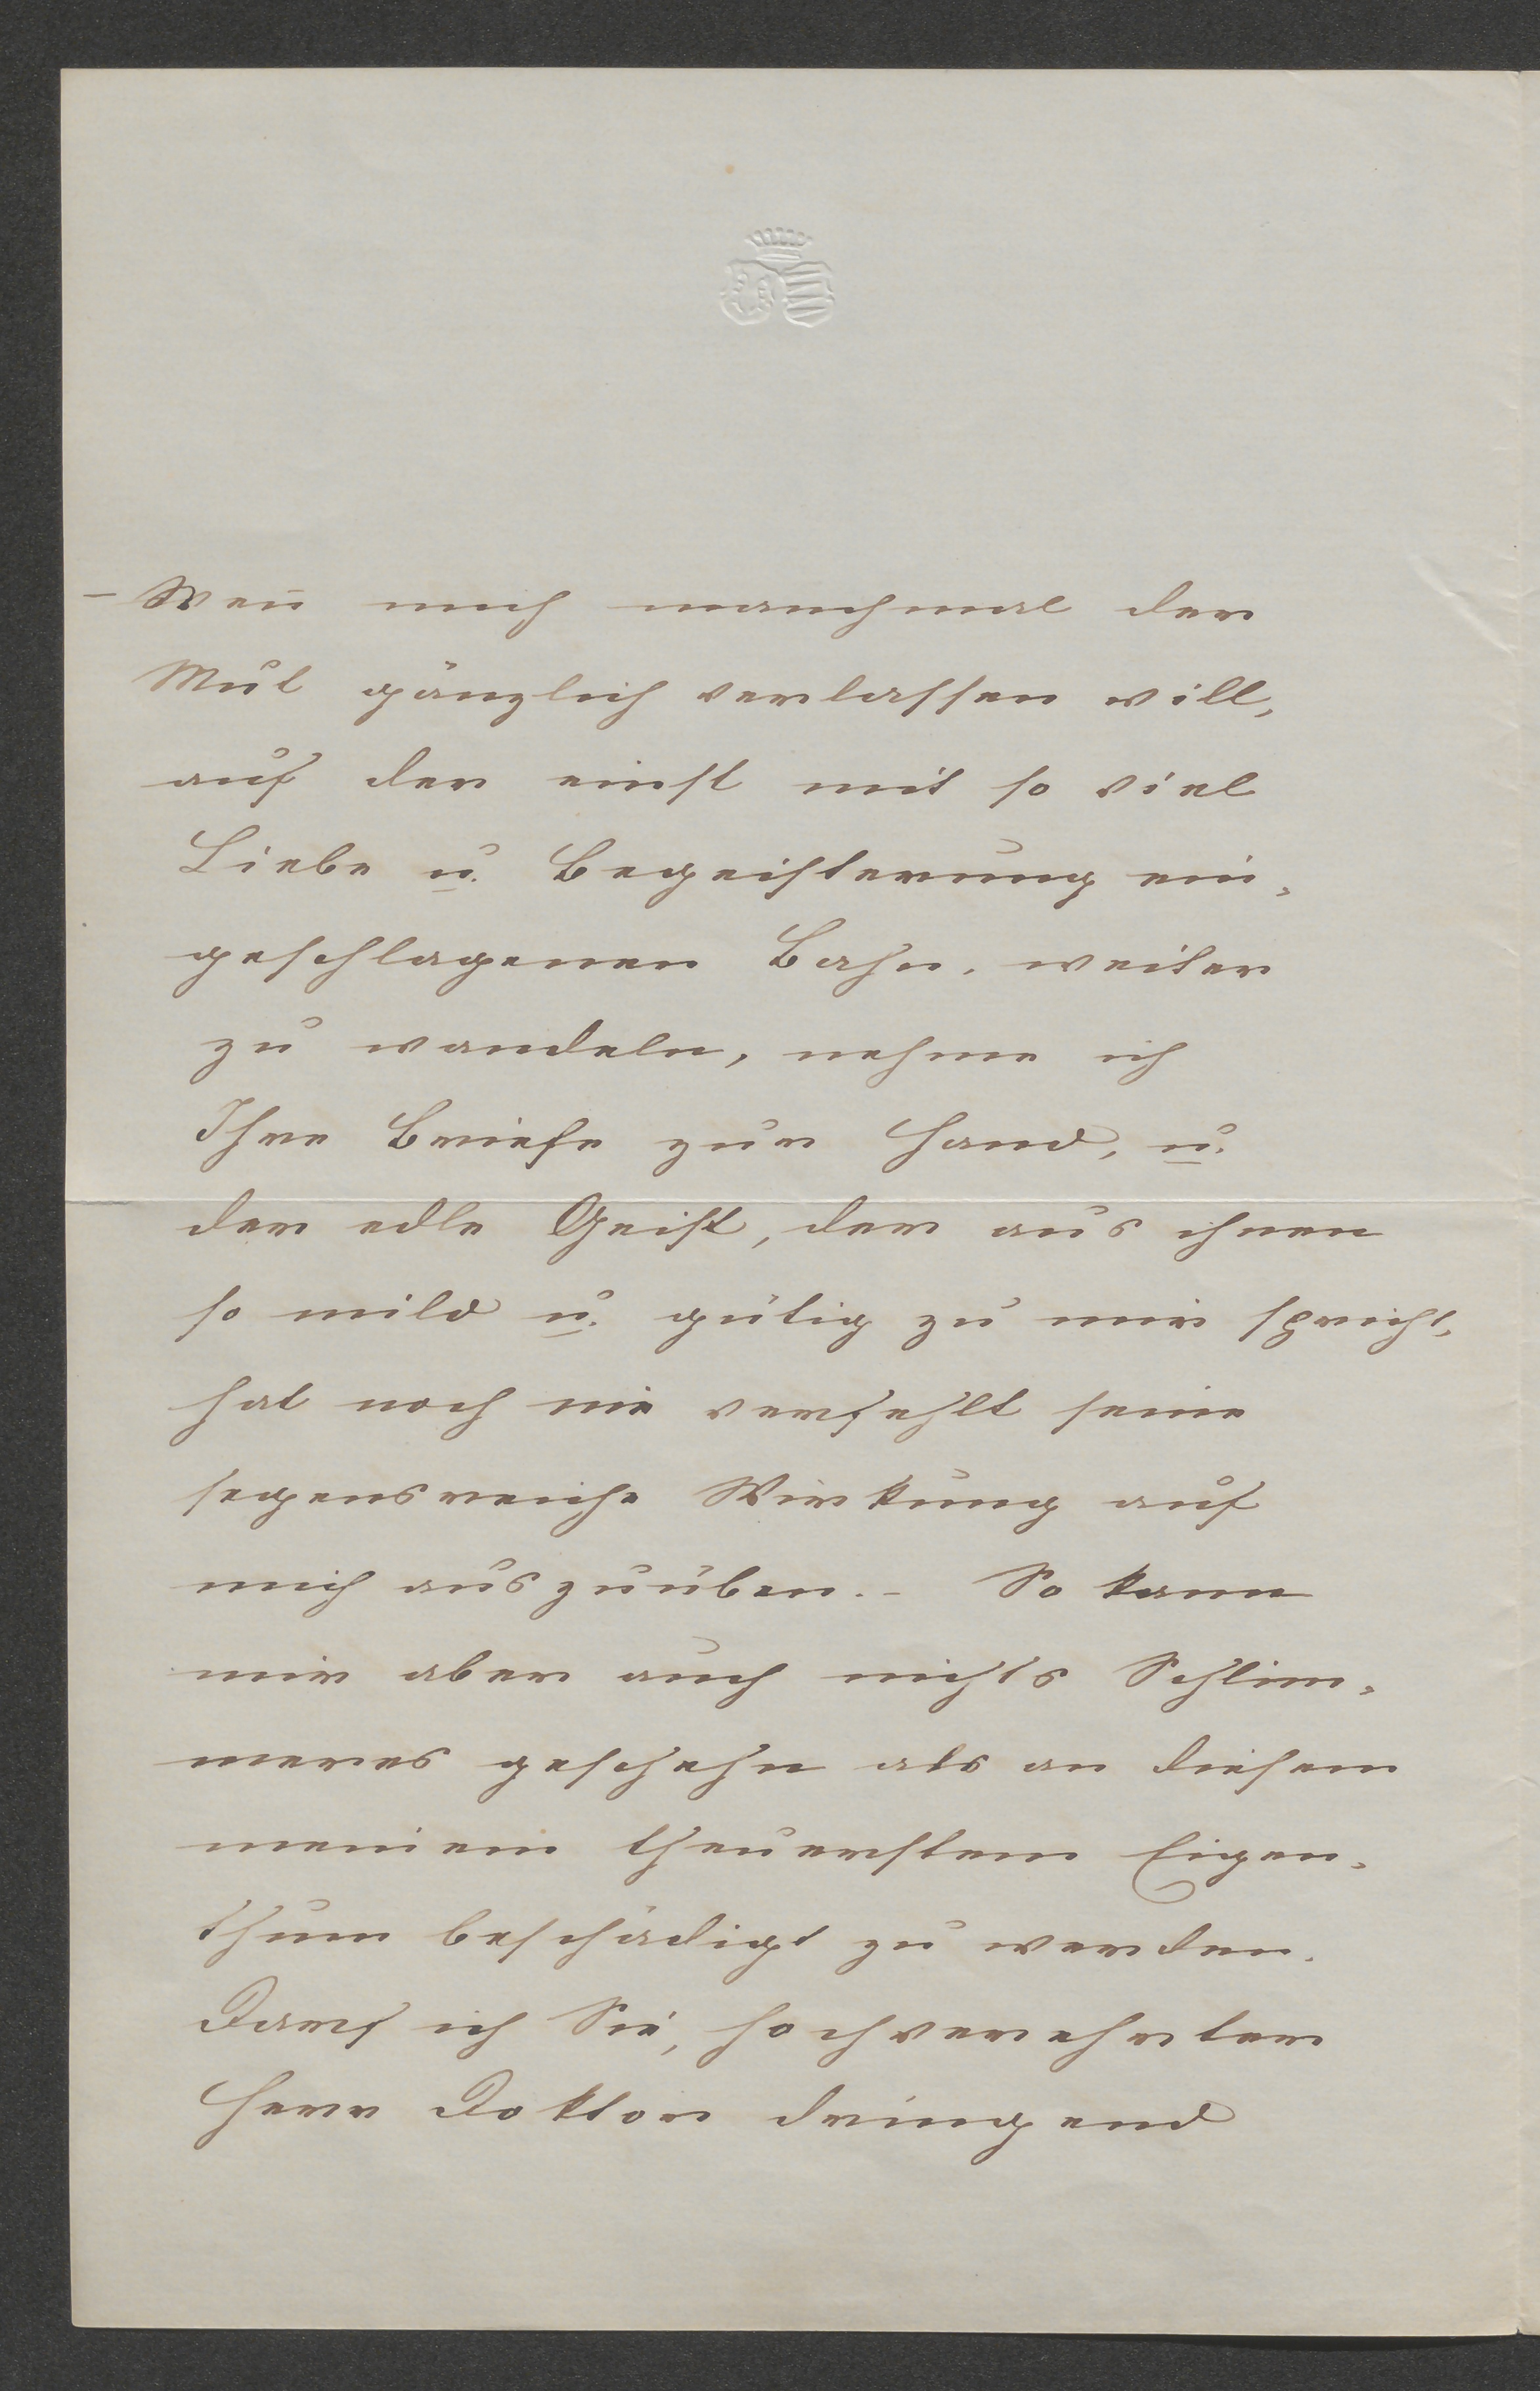 – Wen̄ mich manchmal der
Mut gänzlich verlassen will,
auf der einst mit so viel
Liebe u. Begeisterung ein-
geschlagenen Bahn, weiter
zu wandeln, nehme ich
Ihre Briefe zur Hand, u.
der edle Geist, der aus ihnen
so mild u. gütig zu mir spricht,
hat noch nie verfehlt seine
segensreiche Wirkung auf
mich auszuüben. – So kann
mir aber auch nichts Schlim-
meres geschehn als an diesem
meinem theuerstem Eigen-
thum beschädigt zu werden.
Darf ich Sie, hochverehrter
Herr Doktor dringend